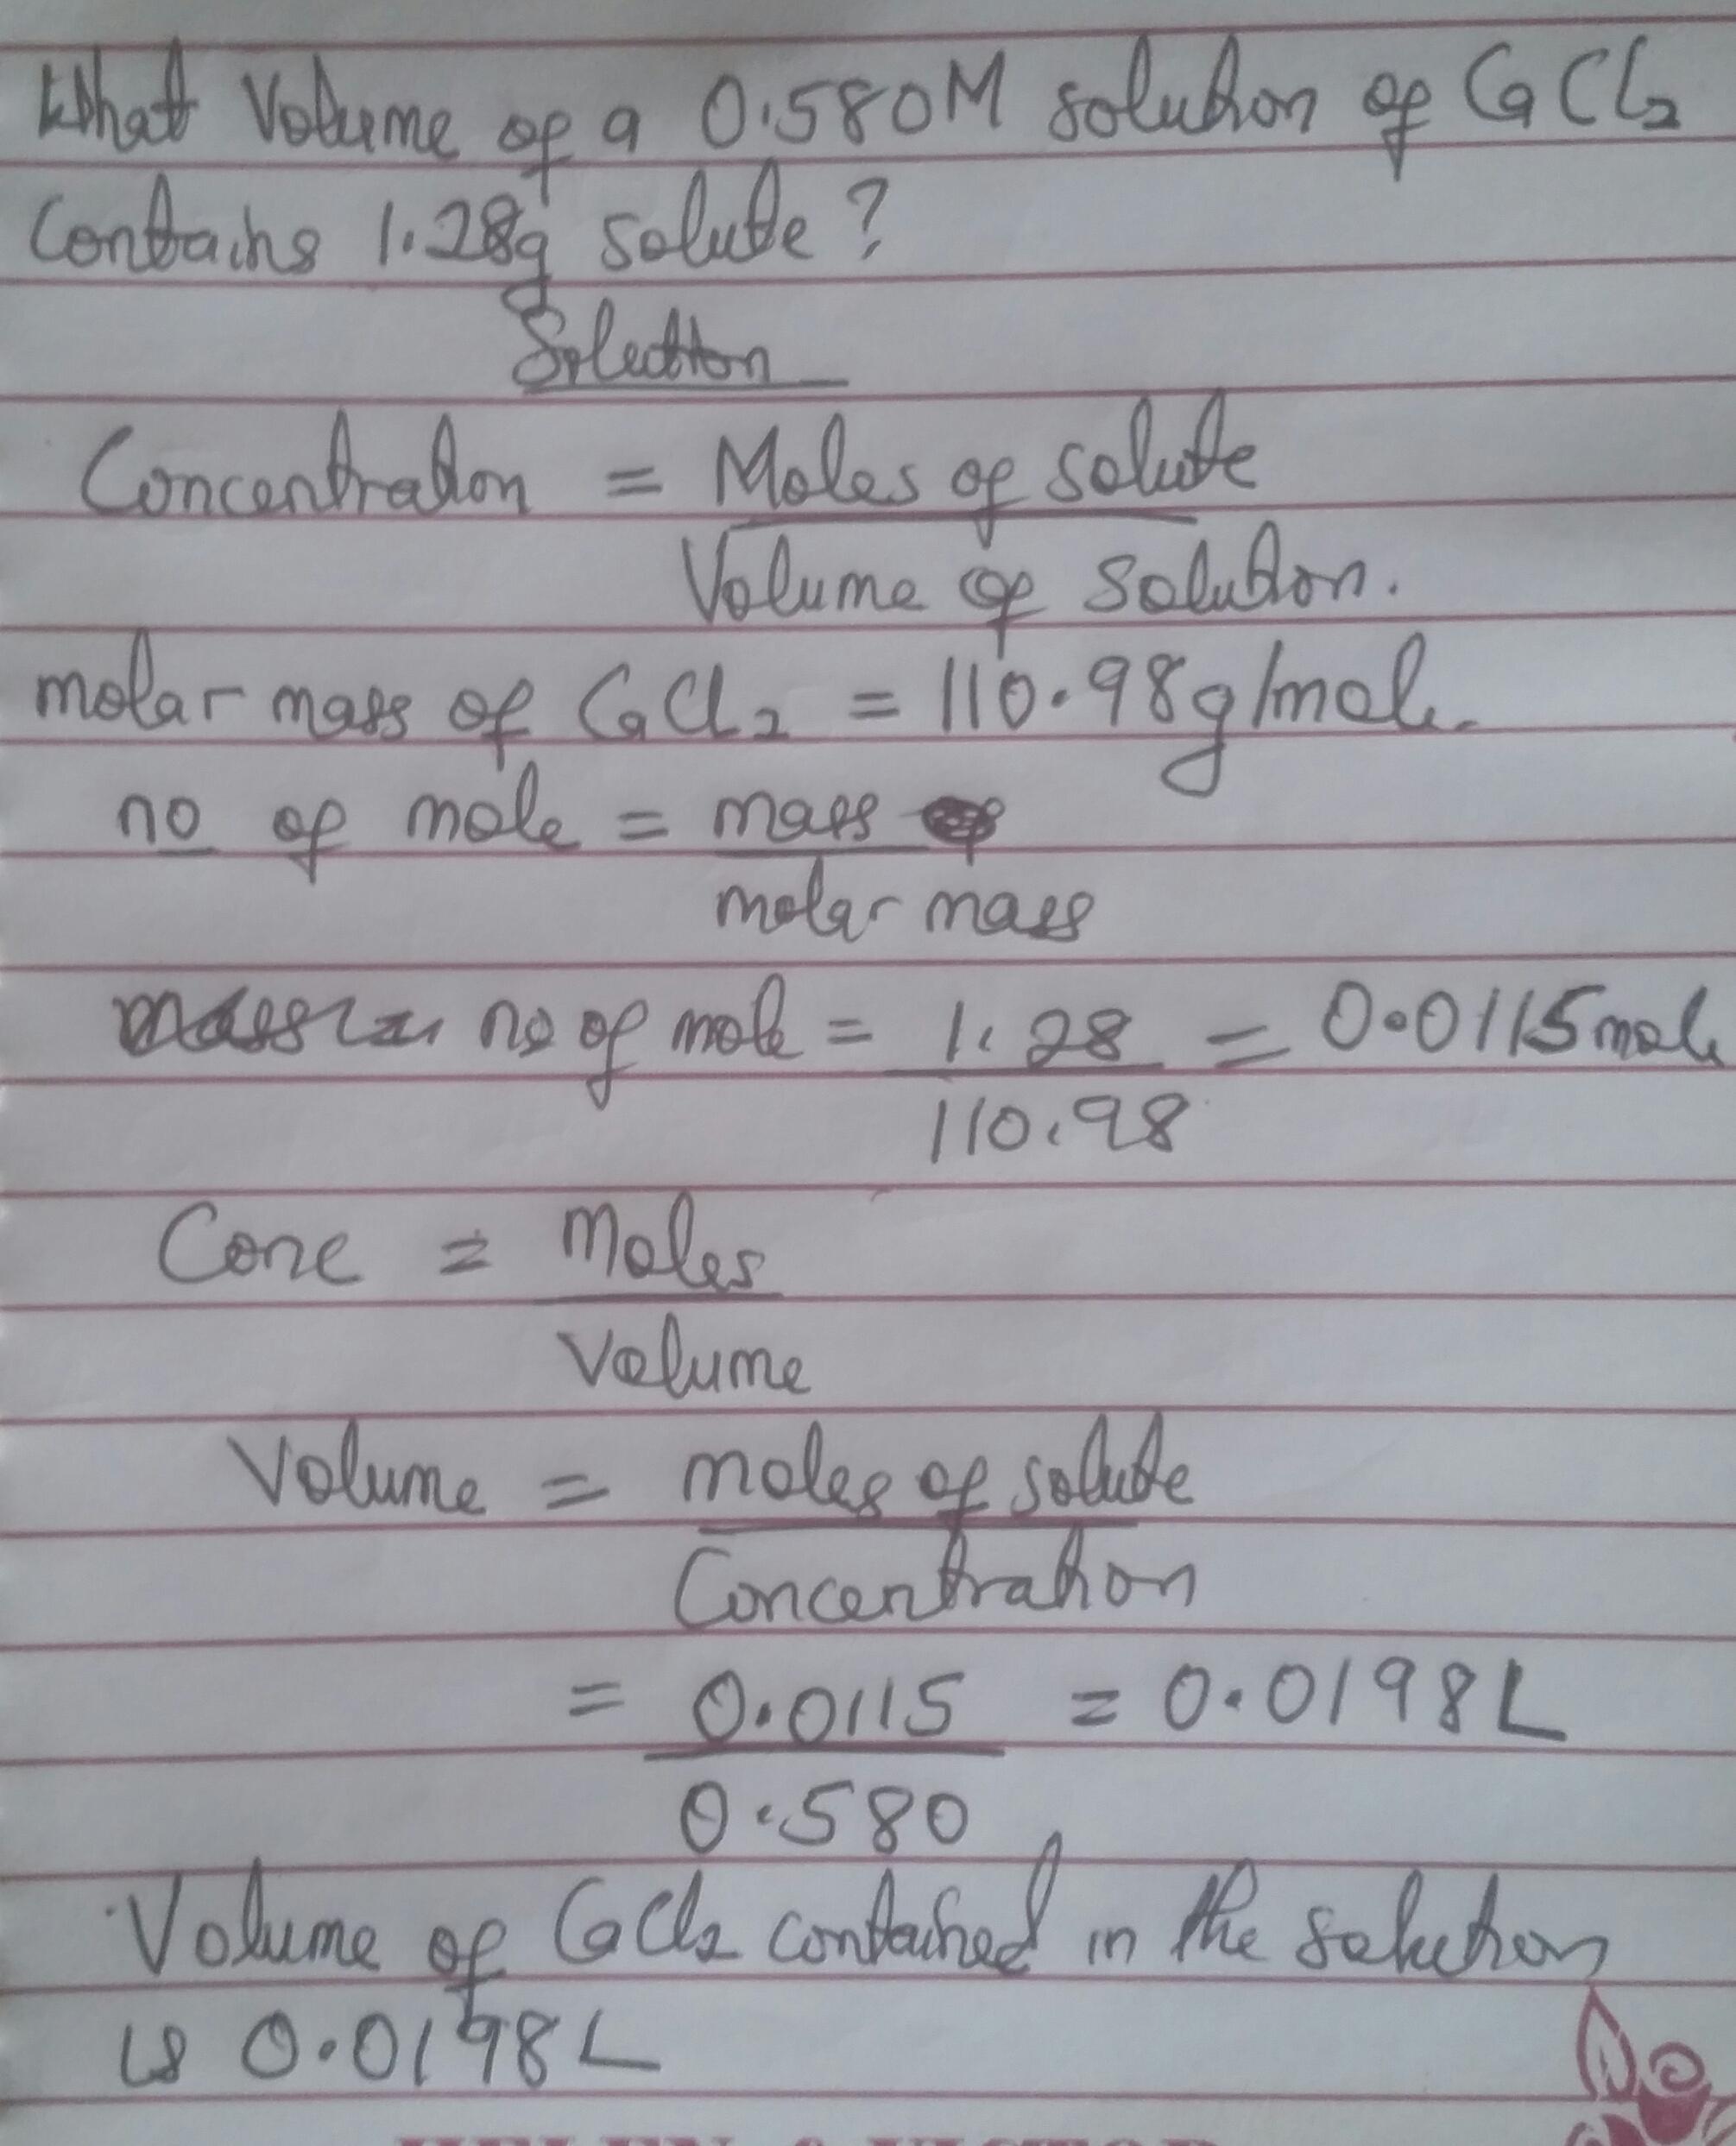 What Volume of a 0.580M solution of CaCl2
Contains 1.28g solute?
Solution
Concentration = Moles of solute
Volume of solution.
molar mass of CaCl2 = 110.98g/mol.
no of mole = mass
molar mass
no of mole = 1.28 = 0.0115mol
110.98
Conc = Moles
Volume
Volume = moles of solute
Concentration
= 0.0115 = 0.0198L
0.580
Volume of CaCl2 contained in the solution
is 0.0198L